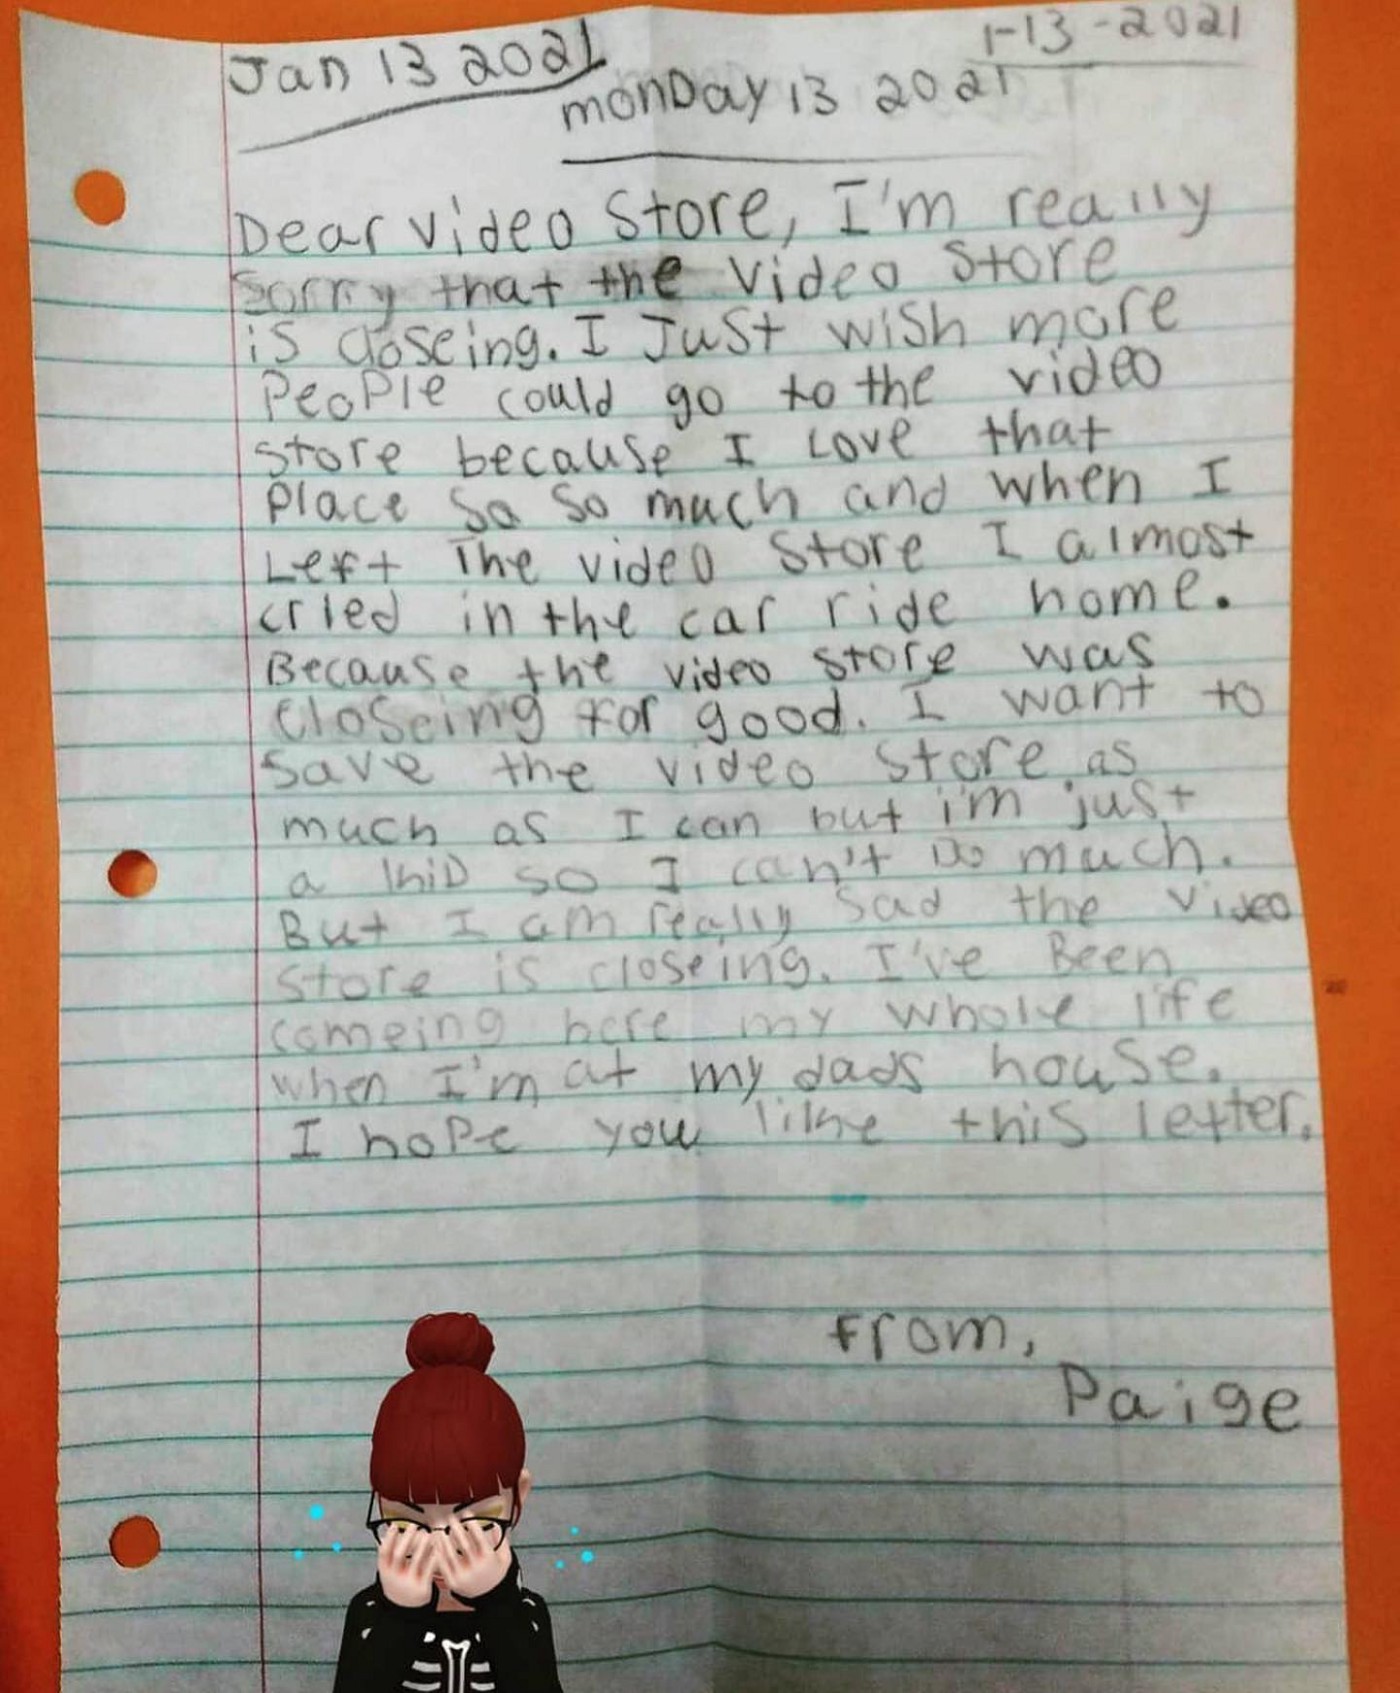 Jan 13 2021
1-13-2021
monDay 13 2021
Dear video Store, I'm really
Sorry that the video Store
is closeing. I Just wish more
PeoPle could go to the video
store because I Love that
Place So So much and when I
Left The video Store I almost
cried in the car ride home.
Because the video store was
closeing for good. I want to
Save the video store as
much as I can but i'm just
a kiD so I can't Do much.
But I am really Sad the video
store is closeing. I've Been
comeing here my whole life
when I'm at my dads house.
I hoPe you like this letter.
From,
Paige